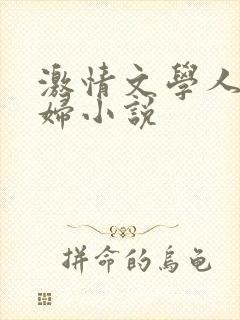 激情文學人
婦小説
拼命的烏龜